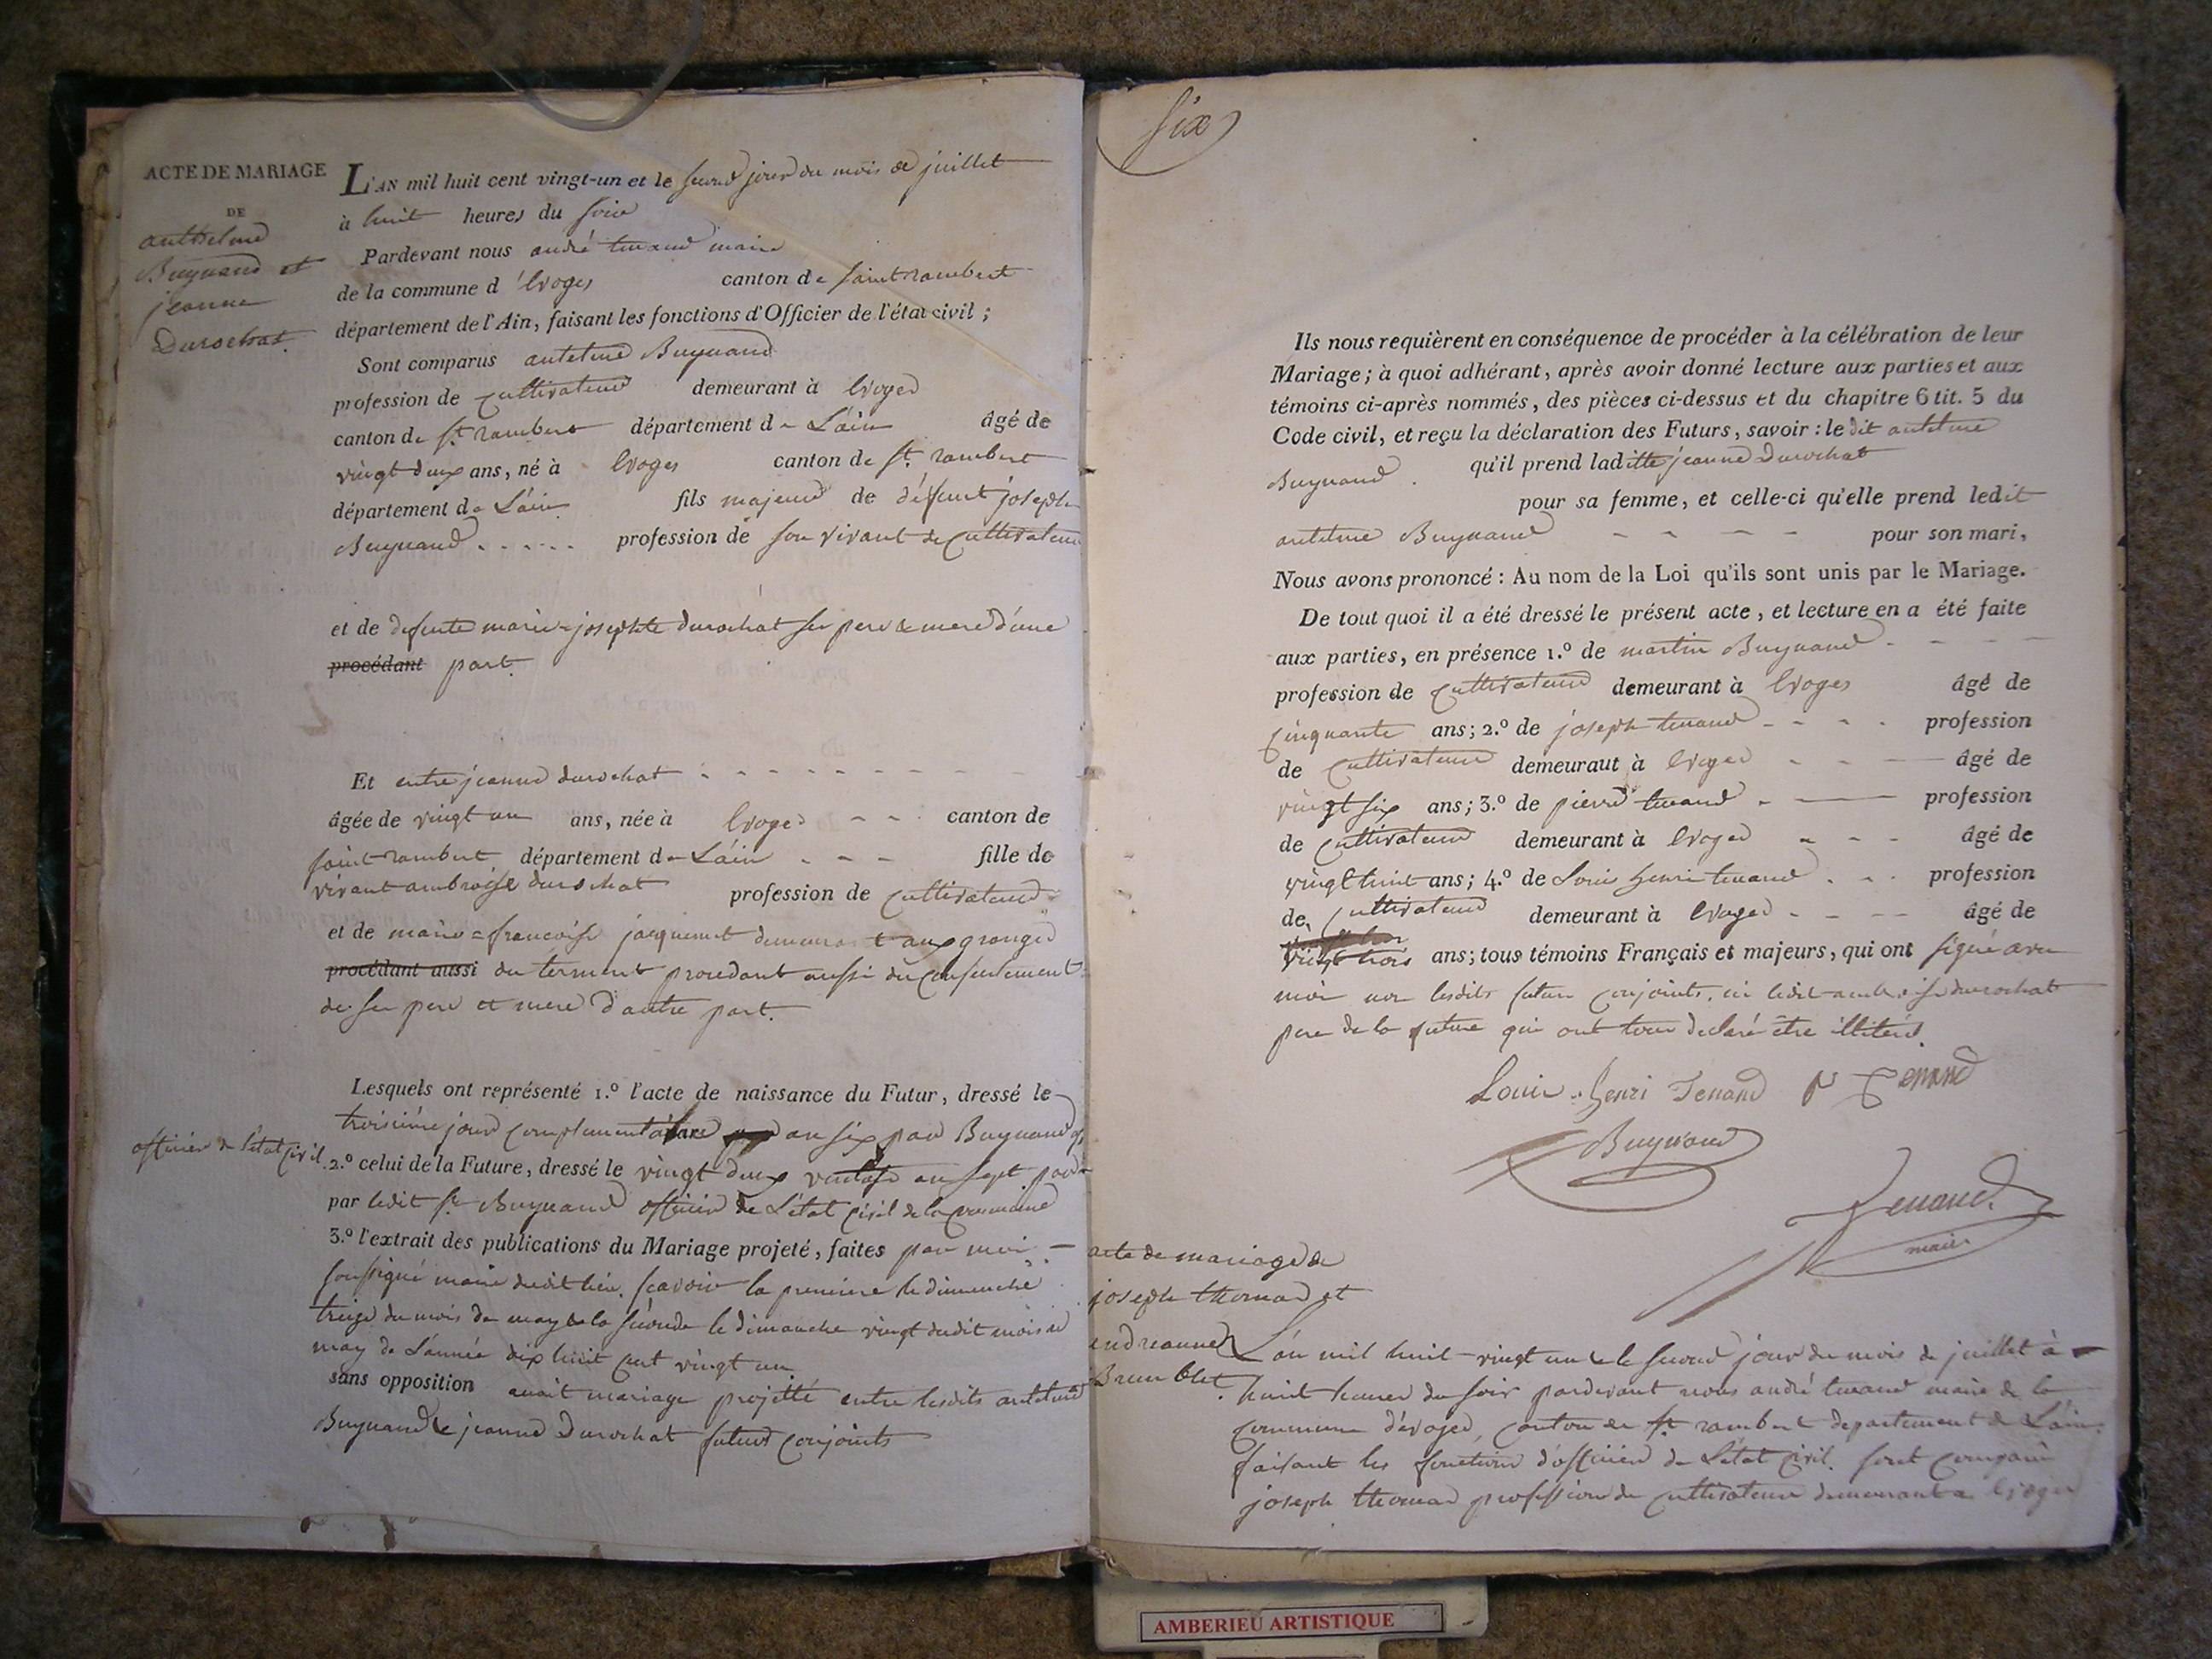 ACTE DE MARIAGE
DE
anthelme
Buynand et
jeanne
Durochat.
L'AN mil huit cent vingt-un et le second jour du mois de juillet
à huit heures du soir
Pardevant nous andré tenand maire
de la commune d'Evoges canton de saint rambert
département de l'Ain, faisant les fonctions d'Officier de l'état civil ;
Sont comparus antelme Buynand
profession de cultivateur demeurant à Evoges
canton de St. rambert département de L'ain âgé de
vingt deux ans, né à Evoges canton de St. rambert
département de L'ain fils majeur de défunt joseph
Buynand profession de son vivant de cultivateur
et de defunte marie-josephte durochat ses pere & mere d'une
procédant part.
Et entre jeanne durochat
âgée de vingt un ans, née à Evoges canton de
saint rambert département de L'ain fille de
vivant ambroise durochat profession de cultivateur
et de marie=francoise jacquemet demeurant aux granges
procédant aussi du terment procedant aussi du consentement
de ses pere et mere d'autre part.
Lesquels ont représenté 1.º l'acte de naissance du Futur, dressé le
troisième jour complementaire an six par Buynand
officier de l'état civil.
2.º celui de la Future, dressé le vingt deux ventose an sept
par ledit Sr Buynand officier de L'état civil de la commune
3.º l'extrait des publications du Mariage projeté, faites par moi
soussigné maire dudit lieu. scavoir la premiere le dimanche
treize du mois de may & la seconde le dimanche vingt dudit mois de
may de L'année dix huit cent vingt un
sans opposition audit mariage projetté entre lesdits antelme
Buynand & jeanne Durochat futurs conjoints
six
Ils nous requièrent en conséquence de procéder à la célébration de leur
Mariage ; à quoi adhérant, après avoir donné lecture aux parties et aux
témoins ci-après nommés, des pièces ci-dessus et du chapitre 6 tit. 5 du
Code civil, et reçu la déclaration des Futurs, savoir : le dit antelme
Buynand. qu'il prend laditte jeanne Durochat
pour sa femme, et celle-ci qu'elle prend ledit
antelme Buynand pour son mari,
Nous avons prononcé : Au nom de la Loi qu'ils sont unis par le Mariage.
De tout quoi il a été dressé le présent acte, et lecture en a été faite
aux parties, en présence 1.º de martin Buynand
profession de cultivateur demeurant à Evoges âgé de
cinquante ans ; 2.º de joseph tenand profession
de cultivateur demeuraut à Evoges âgé de
vingt six ans ; 3.º de pierre tenand profession
de cultivateur demeurant à Evoges âgé de
vingt huit ans ; 4.º de Louis henri tenand profession
de cultivateur demeurant à Evoges âgé de
vingt trois ans ; tous témoins Français et majeurs, qui ont signé avec
moi non lesdits futurs conjoints. ni ledit ambroise durochat
pere de la future qui ont tous declaré être illiteré.
Louis henri Tenand P Tenand
Buynand
Tenand.
maire
acte de mariage de
joseph thomas et
andreanne
Brunblet.
L'an mil huit vingt un & le second jour du mois de juillet à
huit heures du soir pardevant nous andré tenand maire de la
commune d'évoges, canton de St rambert departement de L'ain.
faisant les fonctions d'officier de L'état civil. sont comparu
joseph thomas profession de cultivateur demeurant a Evoges
AMBERIEU ARTISTIQUE